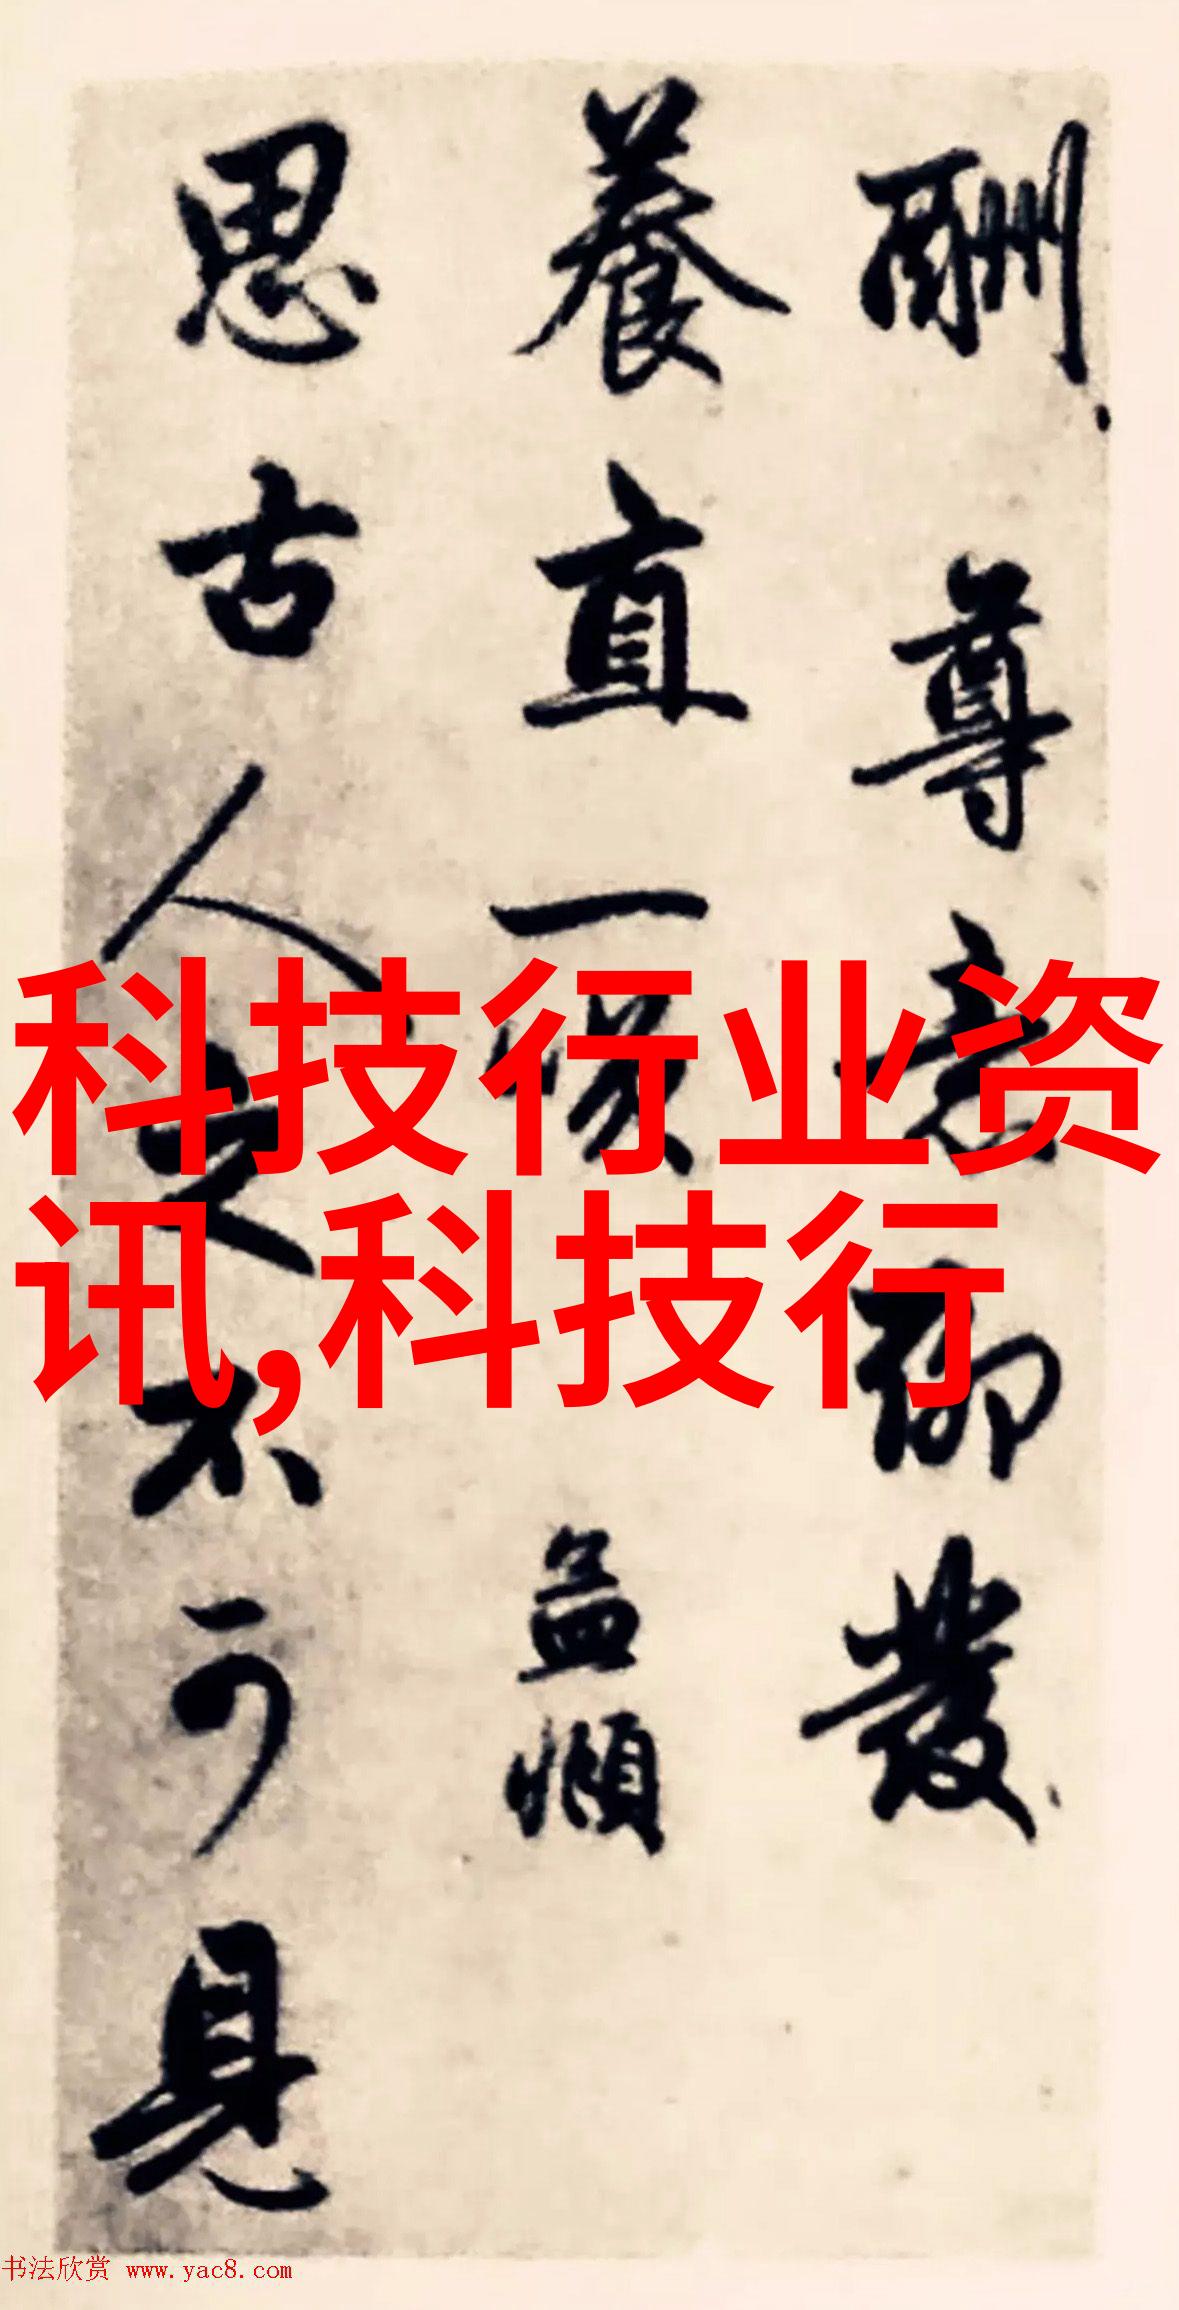 酬尊意聊發
養直一嘆益順
思古人之不可見
科技行业资
讯,科技行
书法欣赏 www.yac8.com